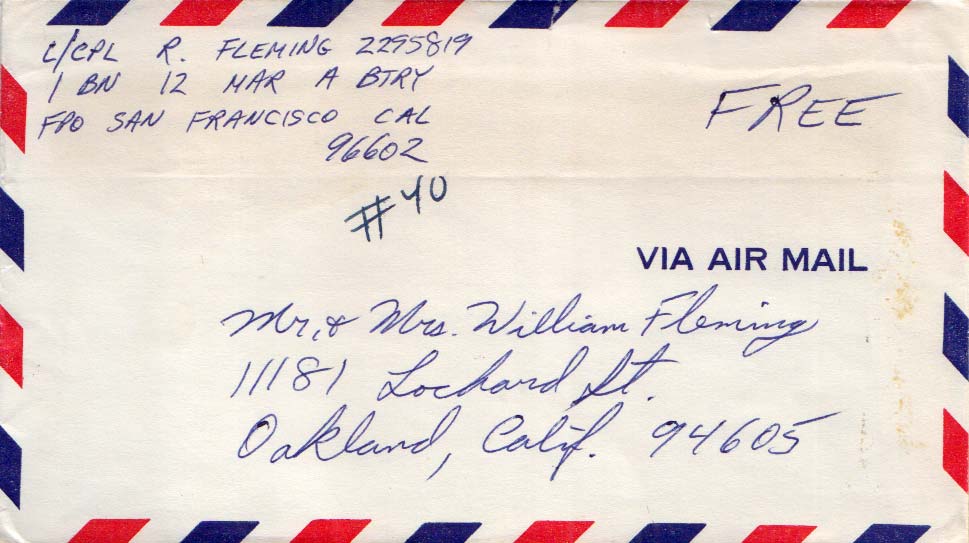 L/CPL R. FLEMING 2295819
1 BN 12 MAR A BTRY
FPO SAN FRANCISCO CAL
96602
FREE
#40
VIA AIR MAIL
Mr. & Mrs. William Fleming
11181 Lochard St.
Oakland, Calif. 94605